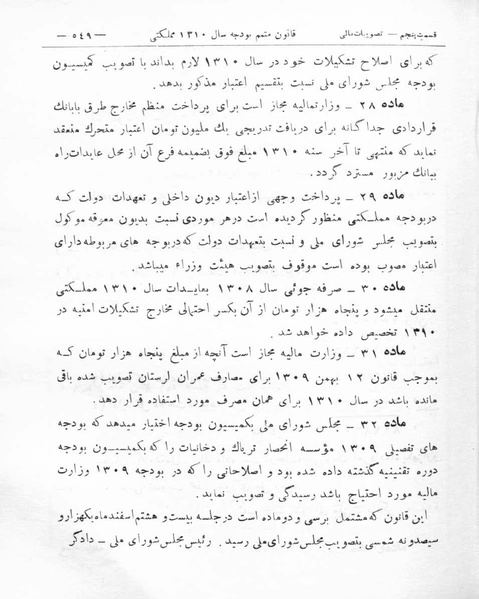 قسمت پنجم — تصویبات مالی قانون متمم بودجه سال ۱۳۱۰ مملکتی — ٥٤٩ —
که برای اصلاح تشکیلات خود در سال ۱۳۱۰ لازم بداند با تصویب کمیسیون
بودجه مجلس شورای ملی نسبت بتقسیم اعتبار مذکور بدهد.
ماده ۲۸ ـ وزارتمالیه مجاز است برای پرداخت منظم مخارج طرق بابانك
قراردادی جداگانه برای دریافت تدریجی یك ملیون تومان اعتبار متحرك منعقد
نماید که منتهی تا آخر سنه ۱۳۱۰ مبلغ فوق بضمیمه فرع آن از محل عایدات راه
ببانك مزبور مسترد گردد.
ماده ۲۹ ـ پرداخت وجهی از اعتبار دیون داخلی و تعهدات دولت که
در بودجه مملکتی منظور گردیده است در هر موردی نسبت بدیون معوقه موکول
بتصویب مجلس شورای ملی و نسبت بتعهدات دولت که در بوجه های مربوطه دارای
اعتبار مصوب بوده است موقوف بتصویب هیئت وزراء میباشد.
ماده ۳۰ ـ صرفه جوئی سال ۱۳۰۸ بعایدات سال ۱۳۱۰ مملکتی
منتقل میشود و پنجاه هزار تومان از آن بکسر احتمالی مخارج تشکیلات امنیه در
۱۳۱۰ تخصیص داده خواهد شد.
ماده ۳۱ ـ وزارت مالیه مجاز است آنچه از مبلغ پنجاه هزار تومان که
بموجب قانون ۱۲ بهمن ۱۳۰۹ برای مصارف عمران لرستان تصویب شده باقی
مانده باشد در سال ۱۳۱۰ برای همان مصرف مورد استفاده قرار دهد.
ماده ۳۲ ـ مجلس شورای ملی بکمیسیون بودجه اختیار میدهد که بودجه
های تفصیلی ۱۳۰۹ مؤسسه انحصار تریاك و دخانیات را که بکمیسیون بودجه
دوره تقنینیه گذشته داده شده بود و اصلاحاتی را که در بودجه ۱۳۰۹ وزارت
مالیه مورد احتیاج باشد رسیدگی و تصویب نماید.
این قانون که مشتمل برسی و دو ماده است در جلسه بیست و هشتم اسفندماه یکهزار و
سیصد و نه شمسی بتصویب مجلس شورای ملی رسید. رئیس مجلس شورای ملی ـ دادگر